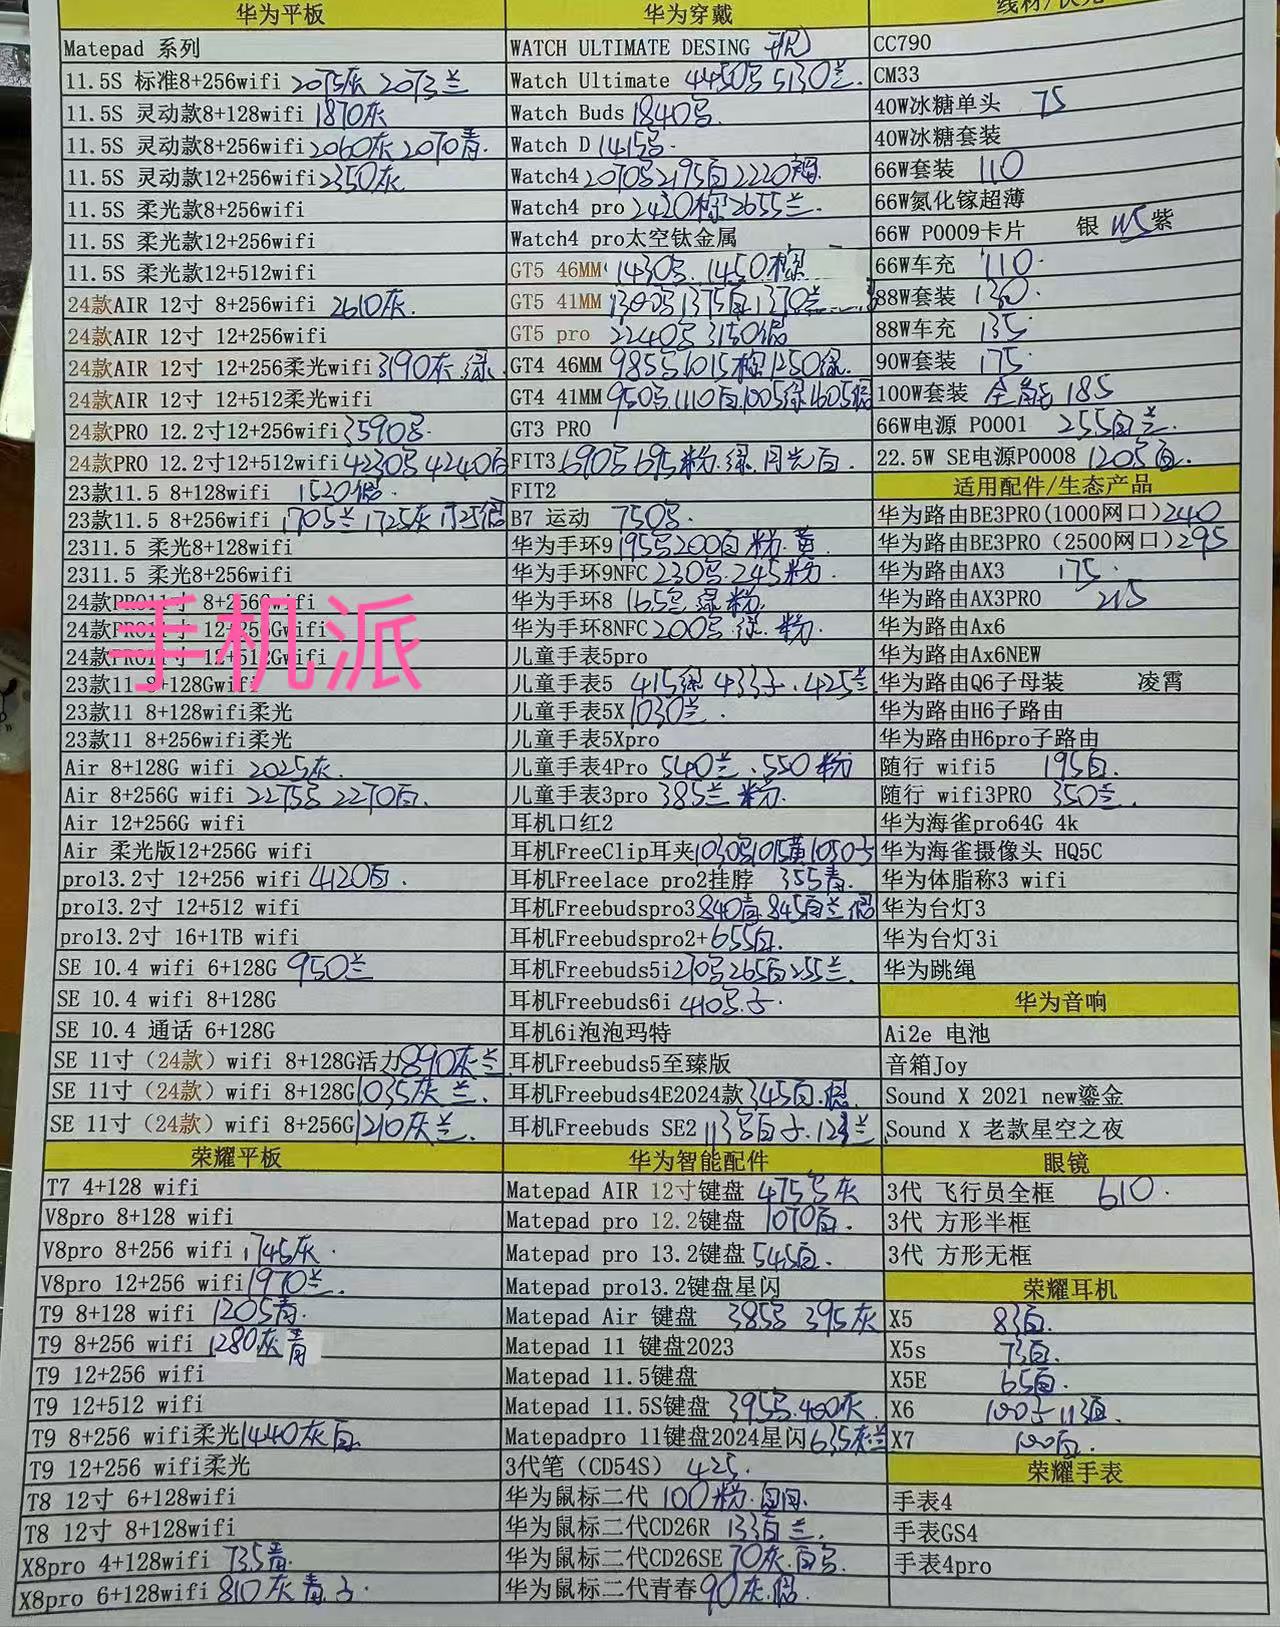 华为平板
Matepad 系列
11.5S 标准8+256wifi 2075灰 2073兰
11.5S 灵动款8+128wifi 1870灰
11.5S 灵动款8+256wifi 2060灰 2070青.
11.5S 灵动款12+256wifi 2350灰
11.5S 柔光款8+256wifi
11.5S 柔光款12+256wifi
11.5S 柔光款12+512wifi
24款AIR 12寸 8+256wifi 2610灰.
24款AIR 12寸 12+256wifi
24款AIR 12寸 12+256柔光wifi 3190灰.绿
24款AIR 12寸 12+512柔光wifi
24款PRO 12.2寸12+256wifi 3590
24款PRO 12.2寸12+512wifi 4230 4240白
23款11.5 8+128wifi 1520
23款11.5 8+256wifi 1705兰 1725灰 1725
2311.5 柔光8+128wifi
2311.5 柔光8+256wifi
24款PRO11寸 8+256Gwifi
24款PRO11寸 12+256Gwifi
24款PRO11寸 12+512Gwifi
手机派
23款11 8+128Gwifi
23款11 8+128wifi柔光
23款11 8+256wifi柔光
Air 8+128G wifi 2025灰.
Air 8+256G wifi 2275 2270白.
Air 12+256G wifi
Air 柔光版12+256G wifi
pro13.2寸 12+256 wifi 4120白.
pro13.2寸 12+512 wifi
pro13.2寸 16+1TB wifi
SE 10.4 wifi 6+128G 950兰
SE 10.4 wifi 8+128G
SE 10.4 通话 6+128G
SE 11寸（24款）wifi 8+128G活力 890灰兰
SE 11寸（24款）wifi 8+128G 1035灰兰.
SE 11寸（24款）wifi 8+256G 1210灰兰.
荣耀平板
T7 4+128 wifi
V8pro 8+128 wifi
V8pro 8+256 wifi 1745灰.
V8pro 12+256 wifi 1970兰.
T9 8+128 wifi 1205青.
T9 8+256 wifi 1280灰青
T9 12+256 wifi
T9 12+512 wifi
T9 8+256 wifi柔光 1440灰白
T9 12+256 wifi柔光
T8 12寸 6+128wifi
T8 12寸 8+128wifi
X8pro 4+128wifi 735青.
X8pro 6+128wifi 810灰青
华为穿戴
WATCH ULTIMATE DESING
Watch Ultimate 4450 5130兰.
Watch Buds 1840
Watch D 1415
Watch4 2070 2195白 2220
Watch4 pro 2420棕 2655兰.
Watch4 pro太空钛金属
GT5 46MM 1430 1450棕
GT5 41MM 1300 1375白 1370兰
GT5 pro 2240 3150
GT4 46MM 985 1015棕 1250绿.
GT4 41MM 950 1110白 1005绿 1605
GT3 PRO
FIT3 690 695粉.绿.月光白.
FIT2
B7 运动 750
华为手环9 195 200白.粉.黄
华为手环9NFC 230 245粉.
华为手环8 165 绿粉.
华为手环8NFC 200 绿.粉.
儿童手表5pro
儿童手表5 415绿 433 425兰
儿童手表5X 1030兰.
儿童手表5Xpro
儿童手表4Pro 540兰.550粉
儿童手表3pro 385兰粉.
耳机口红2
耳机FreeClip耳夹 1030 1015黄 1050
耳机Freelace pro2挂脖 355青.
耳机Freebudspro3 840青 845白兰
耳机Freebudspro2+ 655白.
耳机Freebuds5i 270 265白 255兰.
耳机Freebuds6i 410
耳机6i泡泡玛特
耳机Freebuds5至臻版
耳机Freebuds4E2024款 345白.
耳机Freebuds SE2 113 白
华为智能配件
Matepad AIR 12寸键盘 475 灰
Matepad pro 12.2键盘 1070白.
Matepad pro 13.2键盘 545白.
Matepad pro13.2键盘星闪
Matepad Air 键盘 385 395灰
Matepad 11 键盘2023
Matepad 11.5键盘
Matepad 11.5S键盘 395 400灰
Matepadpro 11键盘2024星闪 635灰兰
3代笔（CD54S） 425.
华为鼠标二代 100粉.
华为鼠标二代CD26R 133白兰.
华为鼠标二代CD26SE 70灰.白
华为鼠标二代青春 90灰.
CC790
CM33
40W冰糖单头 75
40W冰糖套装
66W套装 110
66W氮化镓超薄
66W P0009卡片 银 紫
66W车充 110.
88W套装 130.
88W车充 135.
90W套装 175.
100W套装 全能 185
66W电源 P0001 255白兰.
22.5W SE电源P0008 1205白.
适用配件/生态产品
华为路由BE3PRO(1000网口) 240
华为路由BE3PRO（2500网口）295
华为路由AX3 175.
华为路由AX3PRO 215
华为路由Ax6
华为路由Ax6NEW
华为路由Q6子母装 凌霄
华为路由H6子路由
华为路由H6pro子路由
随行 wifi5 195白.
随行 wifi3PRO 350兰.
华为海雀pro64G 4k
华为海雀摄像头 HQ5C
华为体脂称3 wifi
华为台灯3
华为台灯3i
华为跳绳
华为音响
Ai2e 电池
音箱Joy
Sound X 2021 new鎏金
Sound X 老款星空之夜
眼镜
3代 飞行员全框 610.
3代 方形半框
3代 方形无框
荣耀耳机
X5 83白.
X5s 73白.
X5E 65白.
X6 100 113白.
X7 100白.
荣耀手表
手表4
手表GS4
手表4pro